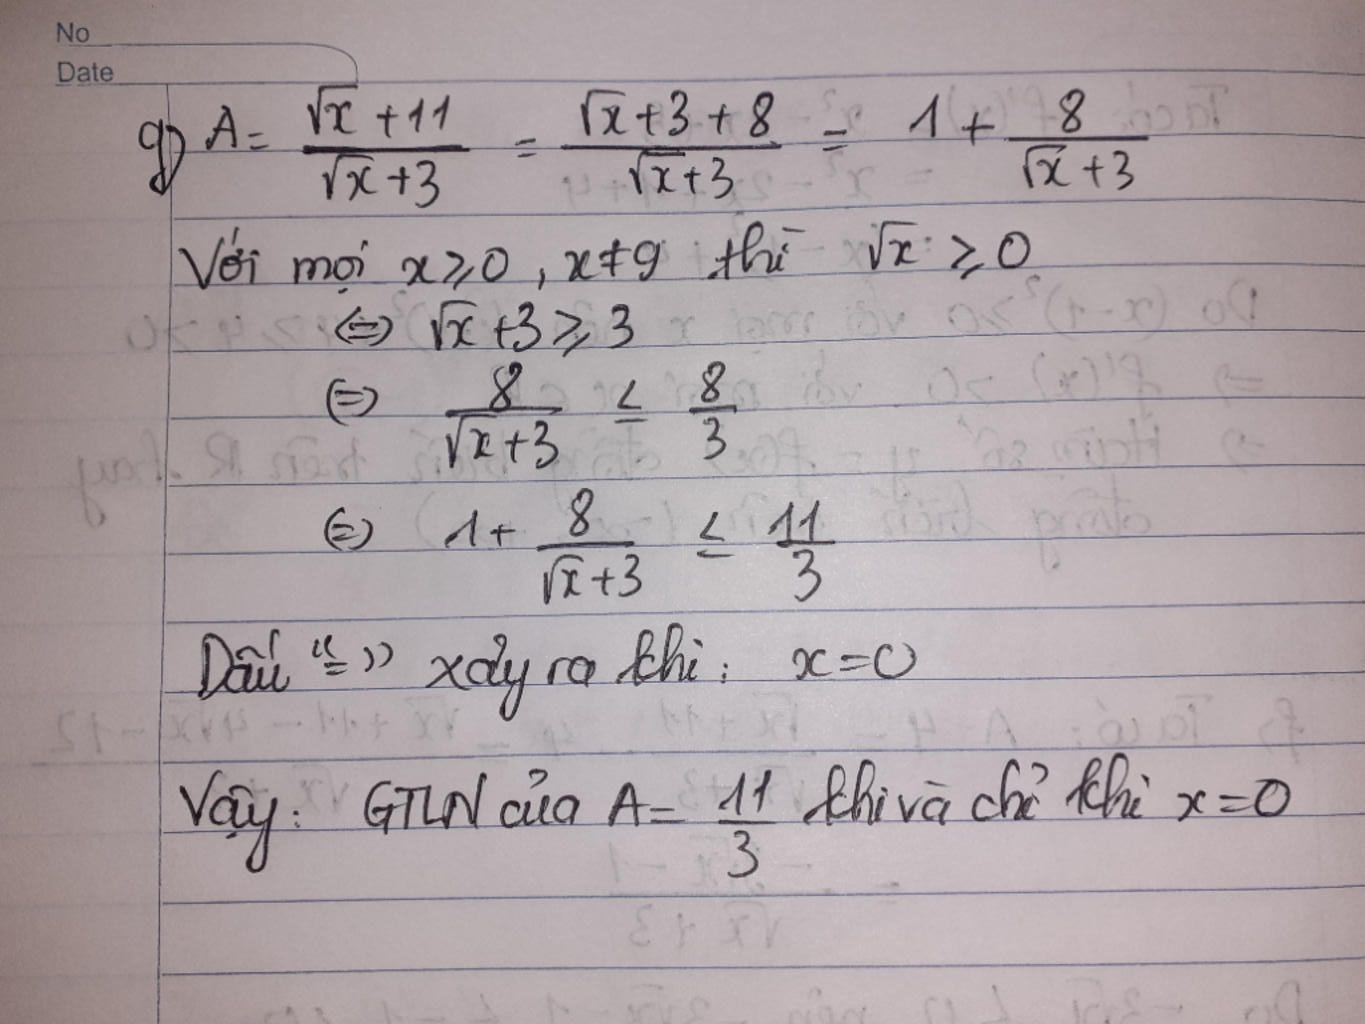 No
Date
g) A = (√x + 11)/(√x + 3) = (√x + 3 + 8)/(√x + 3) = 1 + 8/(√x + 3)
Với mọi x ≥ 0, x ≠ 9 thì √x ≥ 0
⇔ √x + 3 ≥ 3
⇔ 8/(√x + 3) ≤ 8/3
⇔ 1 + 8/(√x + 3) ≤ 11/3
Dấu "=" xảy ra khi: x = 0
Vậy: GTLN của A = 11/3 khi và chỉ khi x = 0